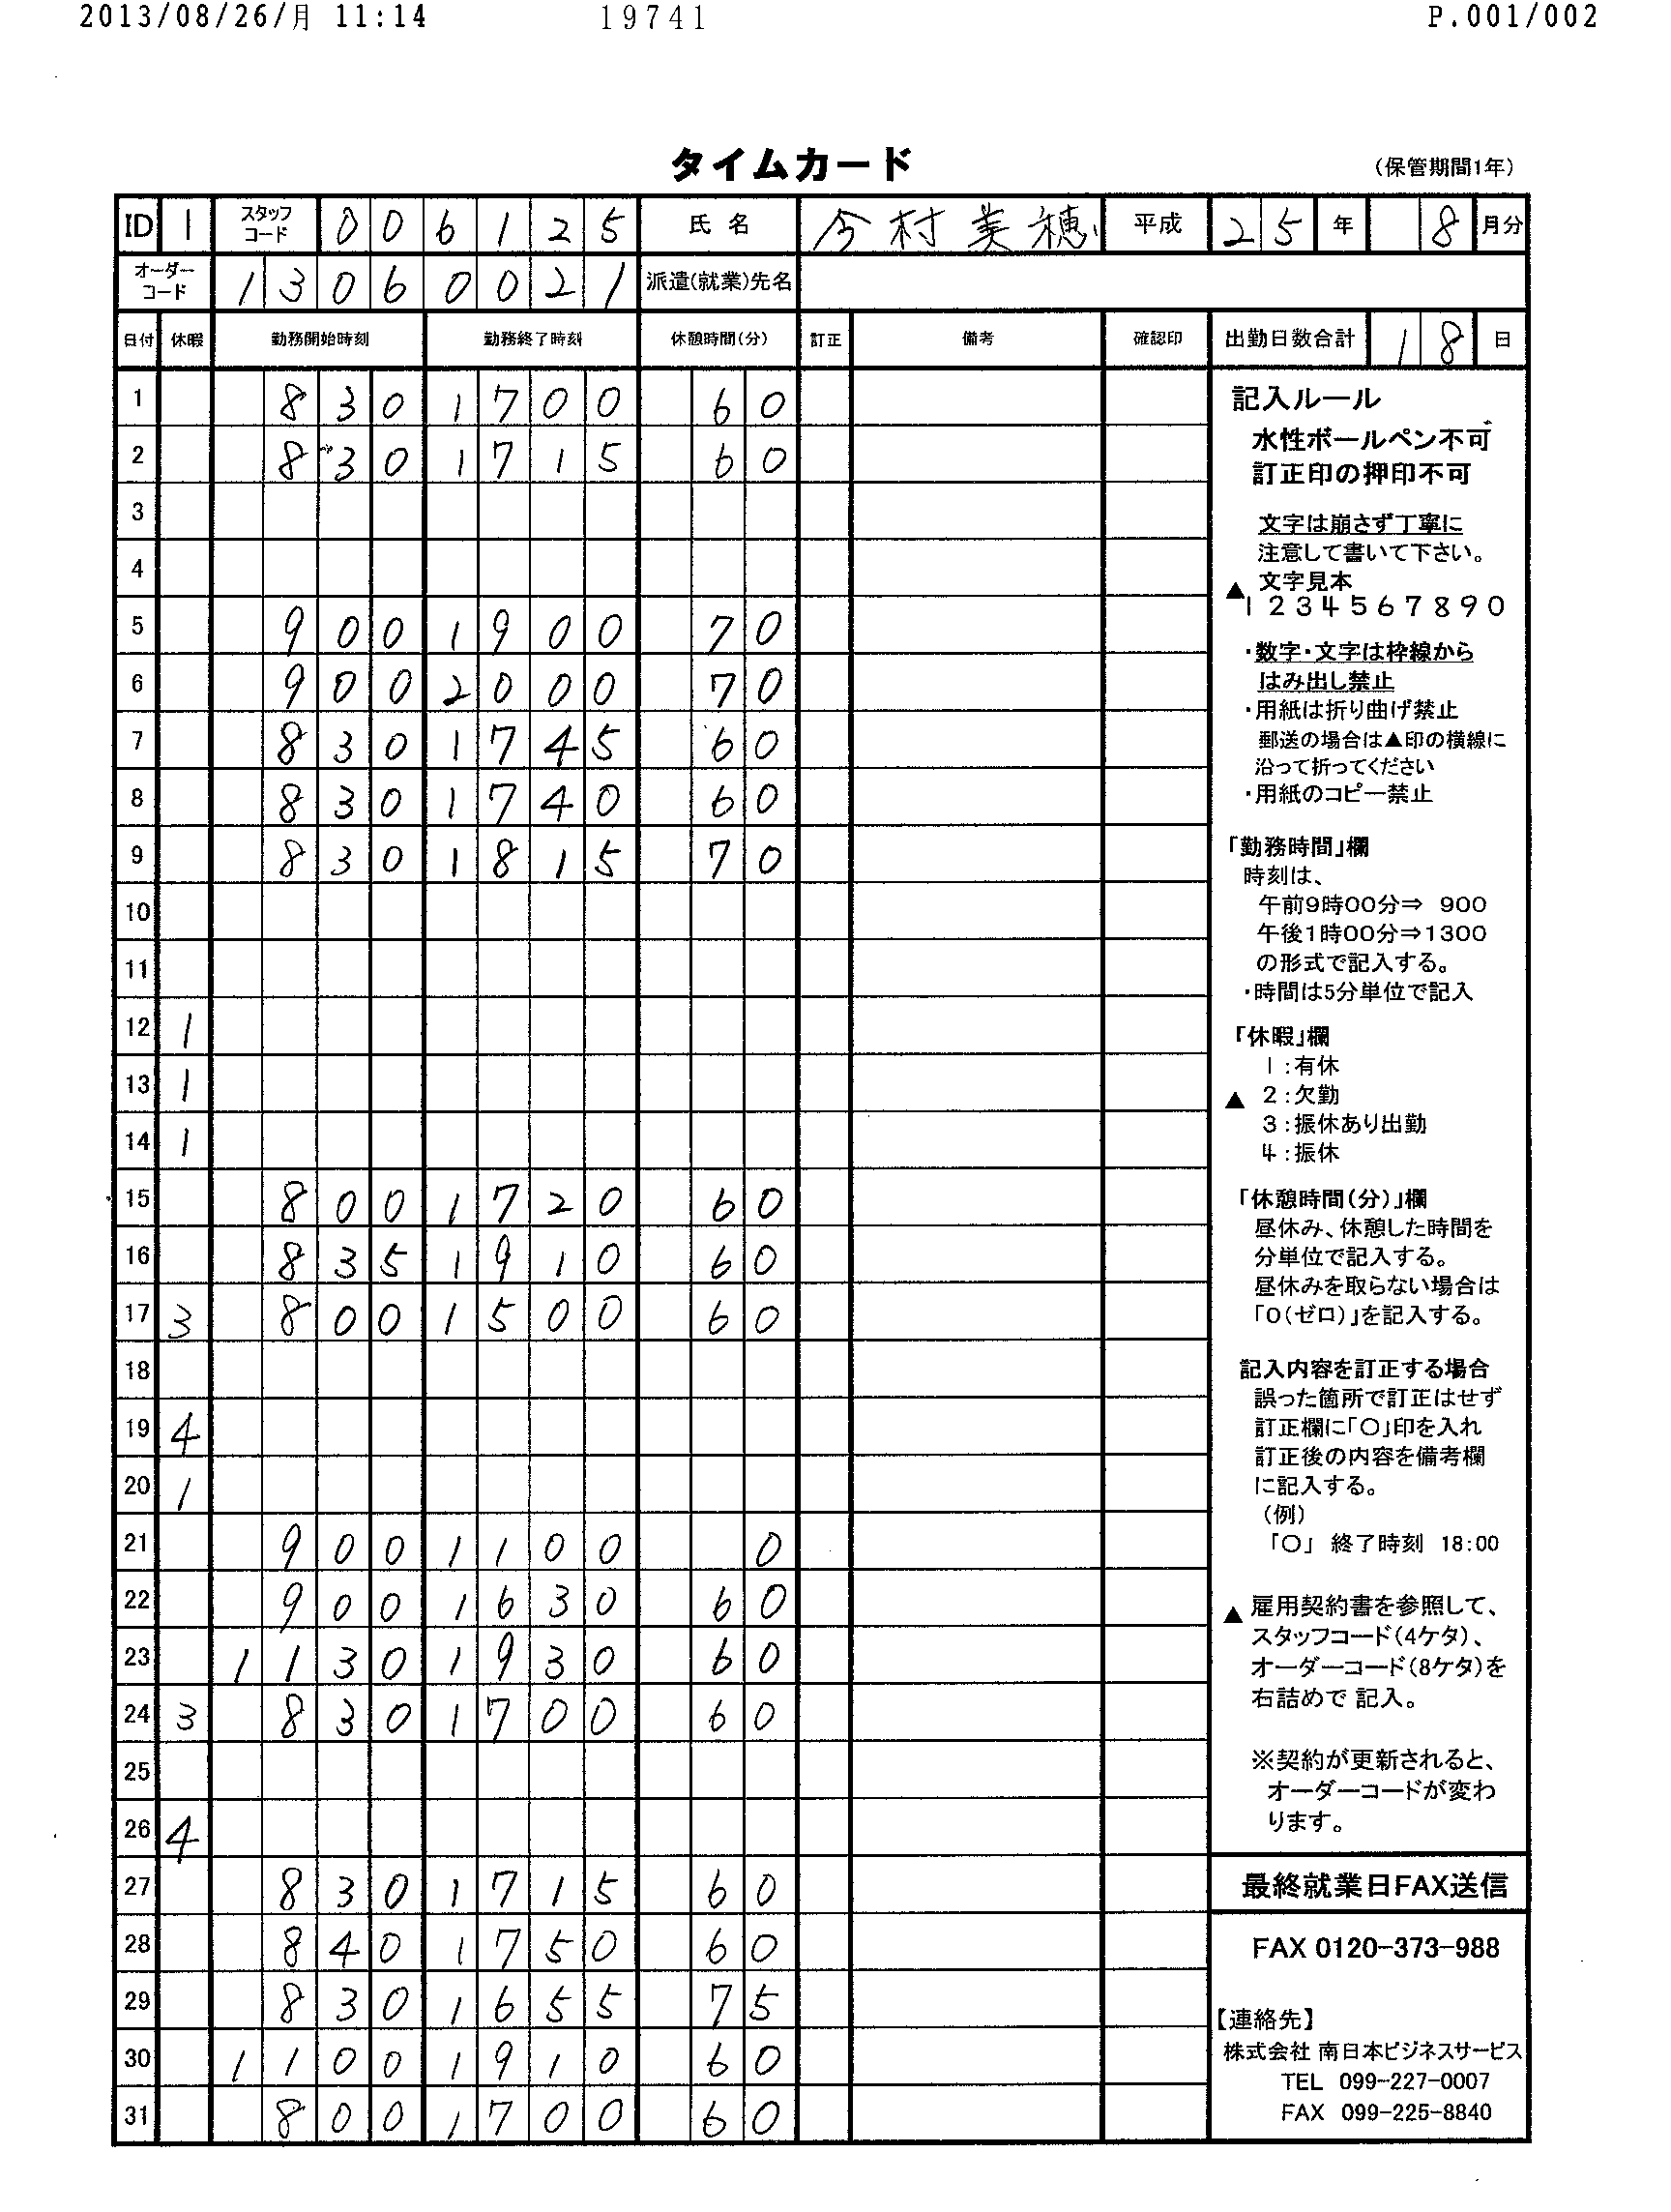 2013/08/26/月 11:14 19741 P.001/002
タイムカード
(保管期間1年)
ID 1 スタッフコード 006125 氏名 今村美穂 平成 25 年 8 月分
オーダーコード 13060021 派遣(就業)先名
日付 休暇 勤務開始時刻 勤務終了時刻 休憩時間(分) 訂正 備考 確認印 出勤日数合計 18 日
1 830 1700 60
2 830 1715 60
3
4
5 900 1900 70
6 900 2000 70
7 830 1745 60
8 830 1740 60
9 830 1815 70
10
11
12 1
13 1
14 1
15 800 1720 60
16 835 1910 60
17 3 800 1500 60
18
19 4
20 1
21 900 1100 0
22 900 1630 60
23 1130 1930 60
24 3 830 1700 60
25
26 4
27 830 1715 60
28 840 1750 60
29 830 1655 75
30 1100 1910 60
31 800 1700 60
記入ルール
水性ボールペン不可
訂正印の押印不可
文字は崩さず丁寧に
注意して書いて下さい。
▲ 文字見本
1234567890
・数字・文字は枠線から
はみ出し禁止
・用紙は折り曲げ禁止
郵送の場合は▲印の横線に
沿って折ってください
・用紙のコピー禁止
「勤務時間」欄
時刻は、
午前9時00分⇒ 900
午後1時00分⇒1300
の形式で記入する。
・時間は5分単位で記入
「休暇」欄
1:有休
▲ 2:欠勤
3:振休あり出勤
4:振休
「休憩時間(分)」欄
昼休み、休憩した時間を
分単位で記入する。
昼休みを取らない場合は
「0(ゼロ)」を記入する。
記入内容を訂正する場合
誤った箇所で訂正はせず
訂正欄に「〇」印を入れ
訂正後の内容を備考欄
に記入する。
(例)
「〇」 終了時刻 18:00
▲ 雇用契約書を参照して、
スタッフコード(4ケタ)、
オーダーコード(8ケタ)を
右詰めで 記入。
※契約が更新されると、
オーダーコードが変わ
ります。
最終就業日FAX送信
FAX 0120-373-988
【連絡先】
株式会社 南日本ビジネスサービス
TEL 099-227-0007
FAX 099-225-8840